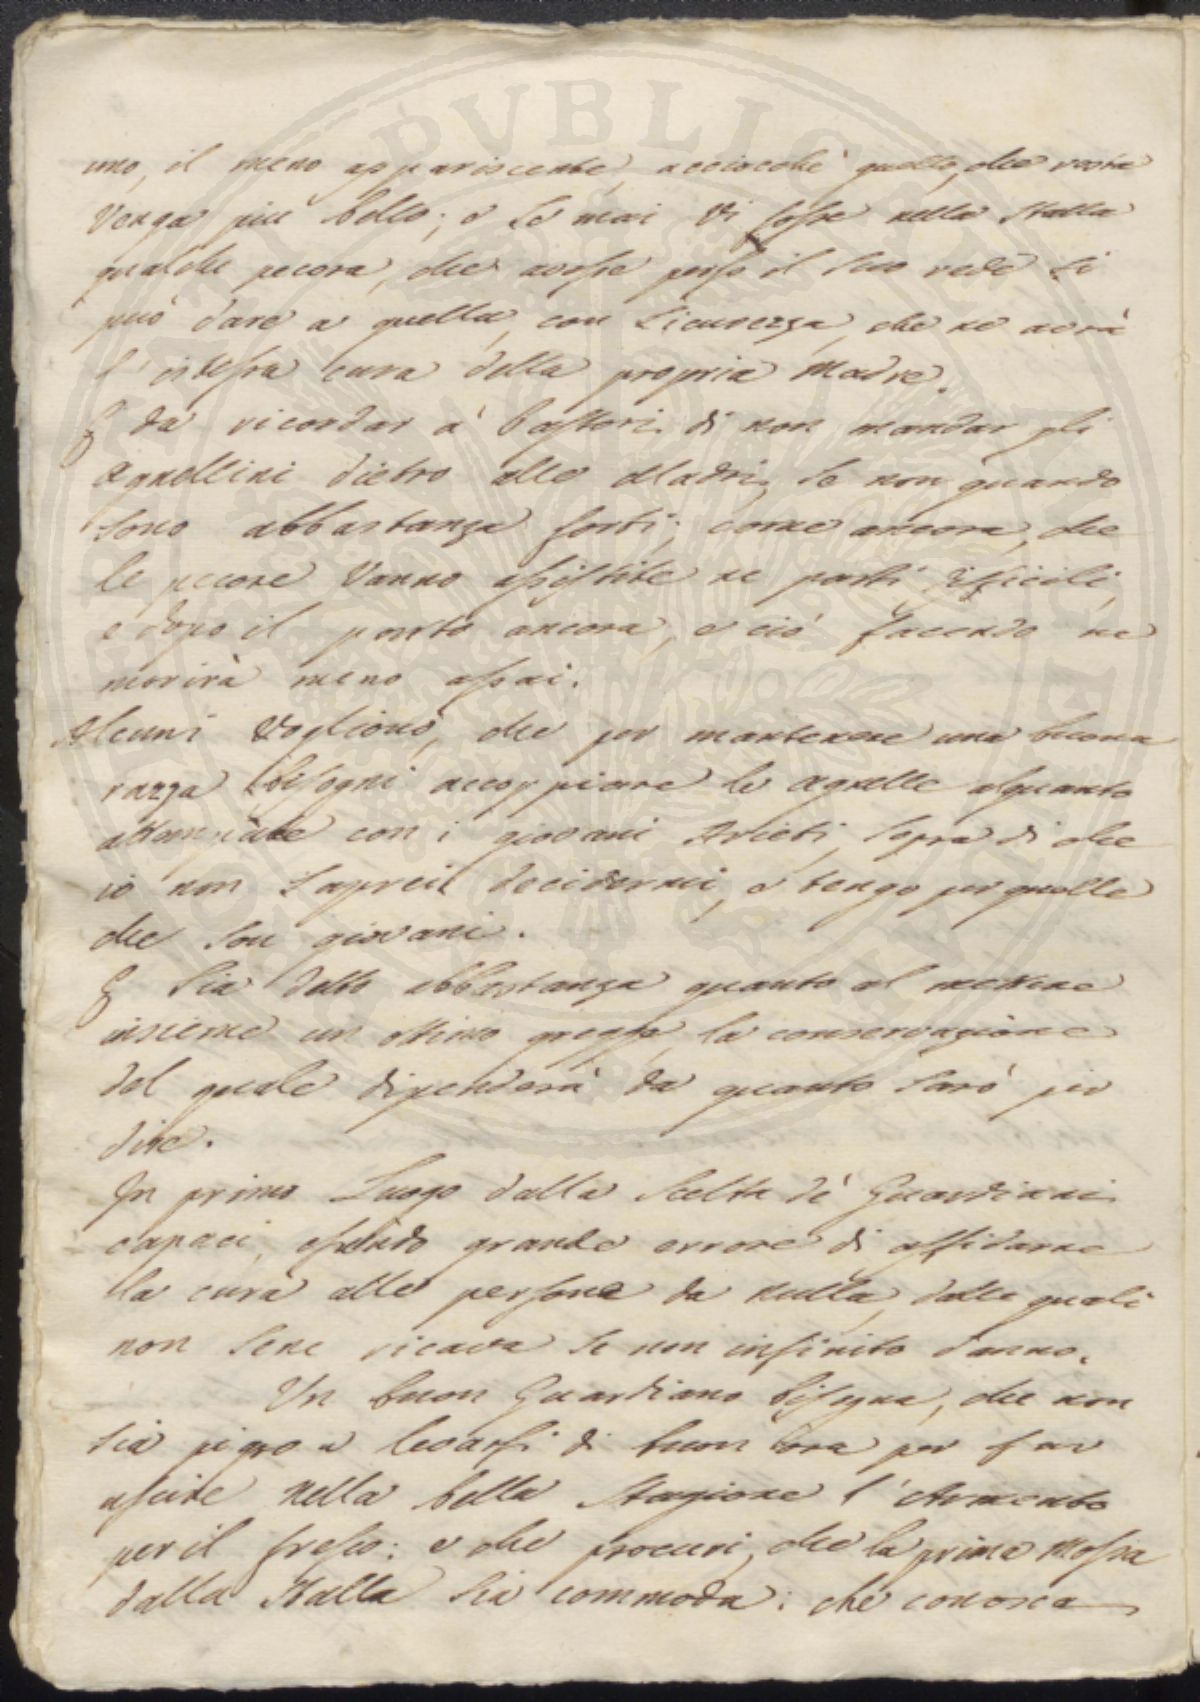 uno, il meno appariscente, acciocchè quello, che resta
Venga più bello; e se mai vi fosse nella Stalla
qualche pecora, che avesse perso il suo rede si
può dare a quella, con Sicurezza, che ne avrà
l'istessa cura della propria Madre.
E da ricordar à Pastori di non mandar gli
Agnellini dietro alle Madri, se non quando
sono abbastanza forti; come ancora, che
le pecore Vanno assistite ne parti difficili,
e dopo il parto ancora, e ciò facendo ne
morirà meno assai.
Alcuni Vogliono, che per mantenere una buona
razza bisogni accoppiare le Agnelle alquanto
attempate con i giovani Arieti, sopra di che
io non saprei decidermi, e tengo per quelle
che son giovani.
E sia detto abbastanza quanto al mettere
insieme un ottimo gregge, la conservazione
del quale dipenderà da quanto sarò per
dire.
In primo Luogo dalla Scelta de' Guardiani
capaci, essendo grande errore di affidarne
la cura alle persone da nulla, dalle quali
non sene ricava se non infinito danno.
Un buon Guardiano bisogna, che non
sia pigro a levarsi di buon ora per far
uscire nella bella Stagione l'Armento
per il fresco; e che procuri, che la prima Mossa
dalla Stalla sia commoda; che conosca
PUBLIC